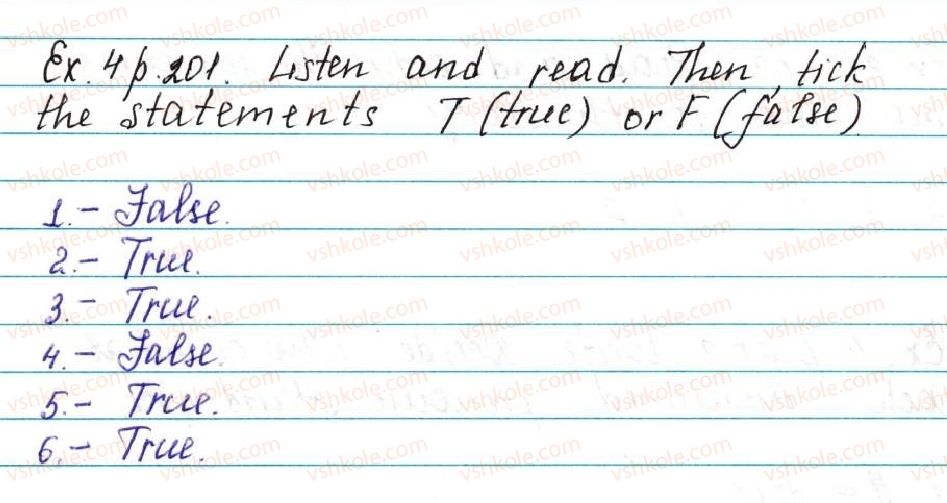 Ex. 4 p. 201. Listen and read. Then tick
the statements T (true) or F (false).
1. - False.
2. - True.
3. - True.
4. - False.
5. - True.
6. - True.